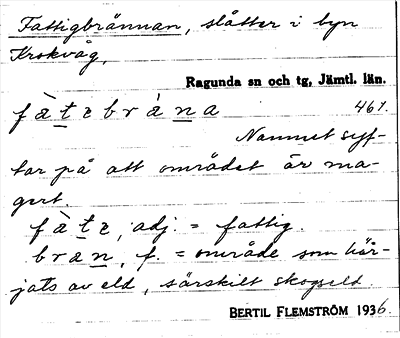 Fattigbrännan, slåtter i byn
Krokvåg,
Ragunda sn och tg, Jämtl. län.
fà̀tebràna 461.
Namnet syf-
tar på att området är ma-
gert.
fàte, adj. = fattig.
bran, f. = område som här-
jats av eld, särskilt skogseld.
BERTIL FLEMSTRÖM 1936.